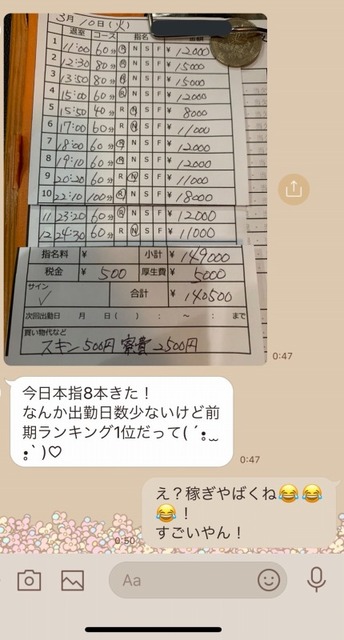 3月10日(火)
退室 コース 指名 金額
1 11:00 60分 Ⓡ N S F ¥12000
2 12:30 80分 Ⓡ N S F ¥15000
3 13:50 80分 Ⓡ N S F ¥15000
4 15:00 60分 Ⓡ N S F ¥12000
5 15:50 40分 R Ⓝ S F ¥8000
6 17:00 60分 R Ⓝ S F ¥11000
7 18:00 60分 Ⓡ N S F ¥12000
8 19:10 60分 Ⓡ N S F ¥12000
9 20:20 60分 R Ⓝ S F ¥11000
10 22:10 100分 Ⓡ N S F ¥18000
11 23:20 60分 Ⓡ N S F ¥12000
12 24:30 60分 R Ⓝ S F ¥11000
指名料 ¥ 小計 ¥149000
税金 ¥500 厚生費 ¥5000
サイン ✓ 合計 ¥140500
次回出勤日 月 日( ) : ~ : まで
買い物代など
スキン500円 寮費2500円
0:47
今日本指8本きた!
なんか出勤日数少ないけど前
期ランキング1位だって( ´ః ౢ
ః` )♡
0:47
え?稼ぎやばくね😂😂
😂!
すごいやん!
0:50
Aa